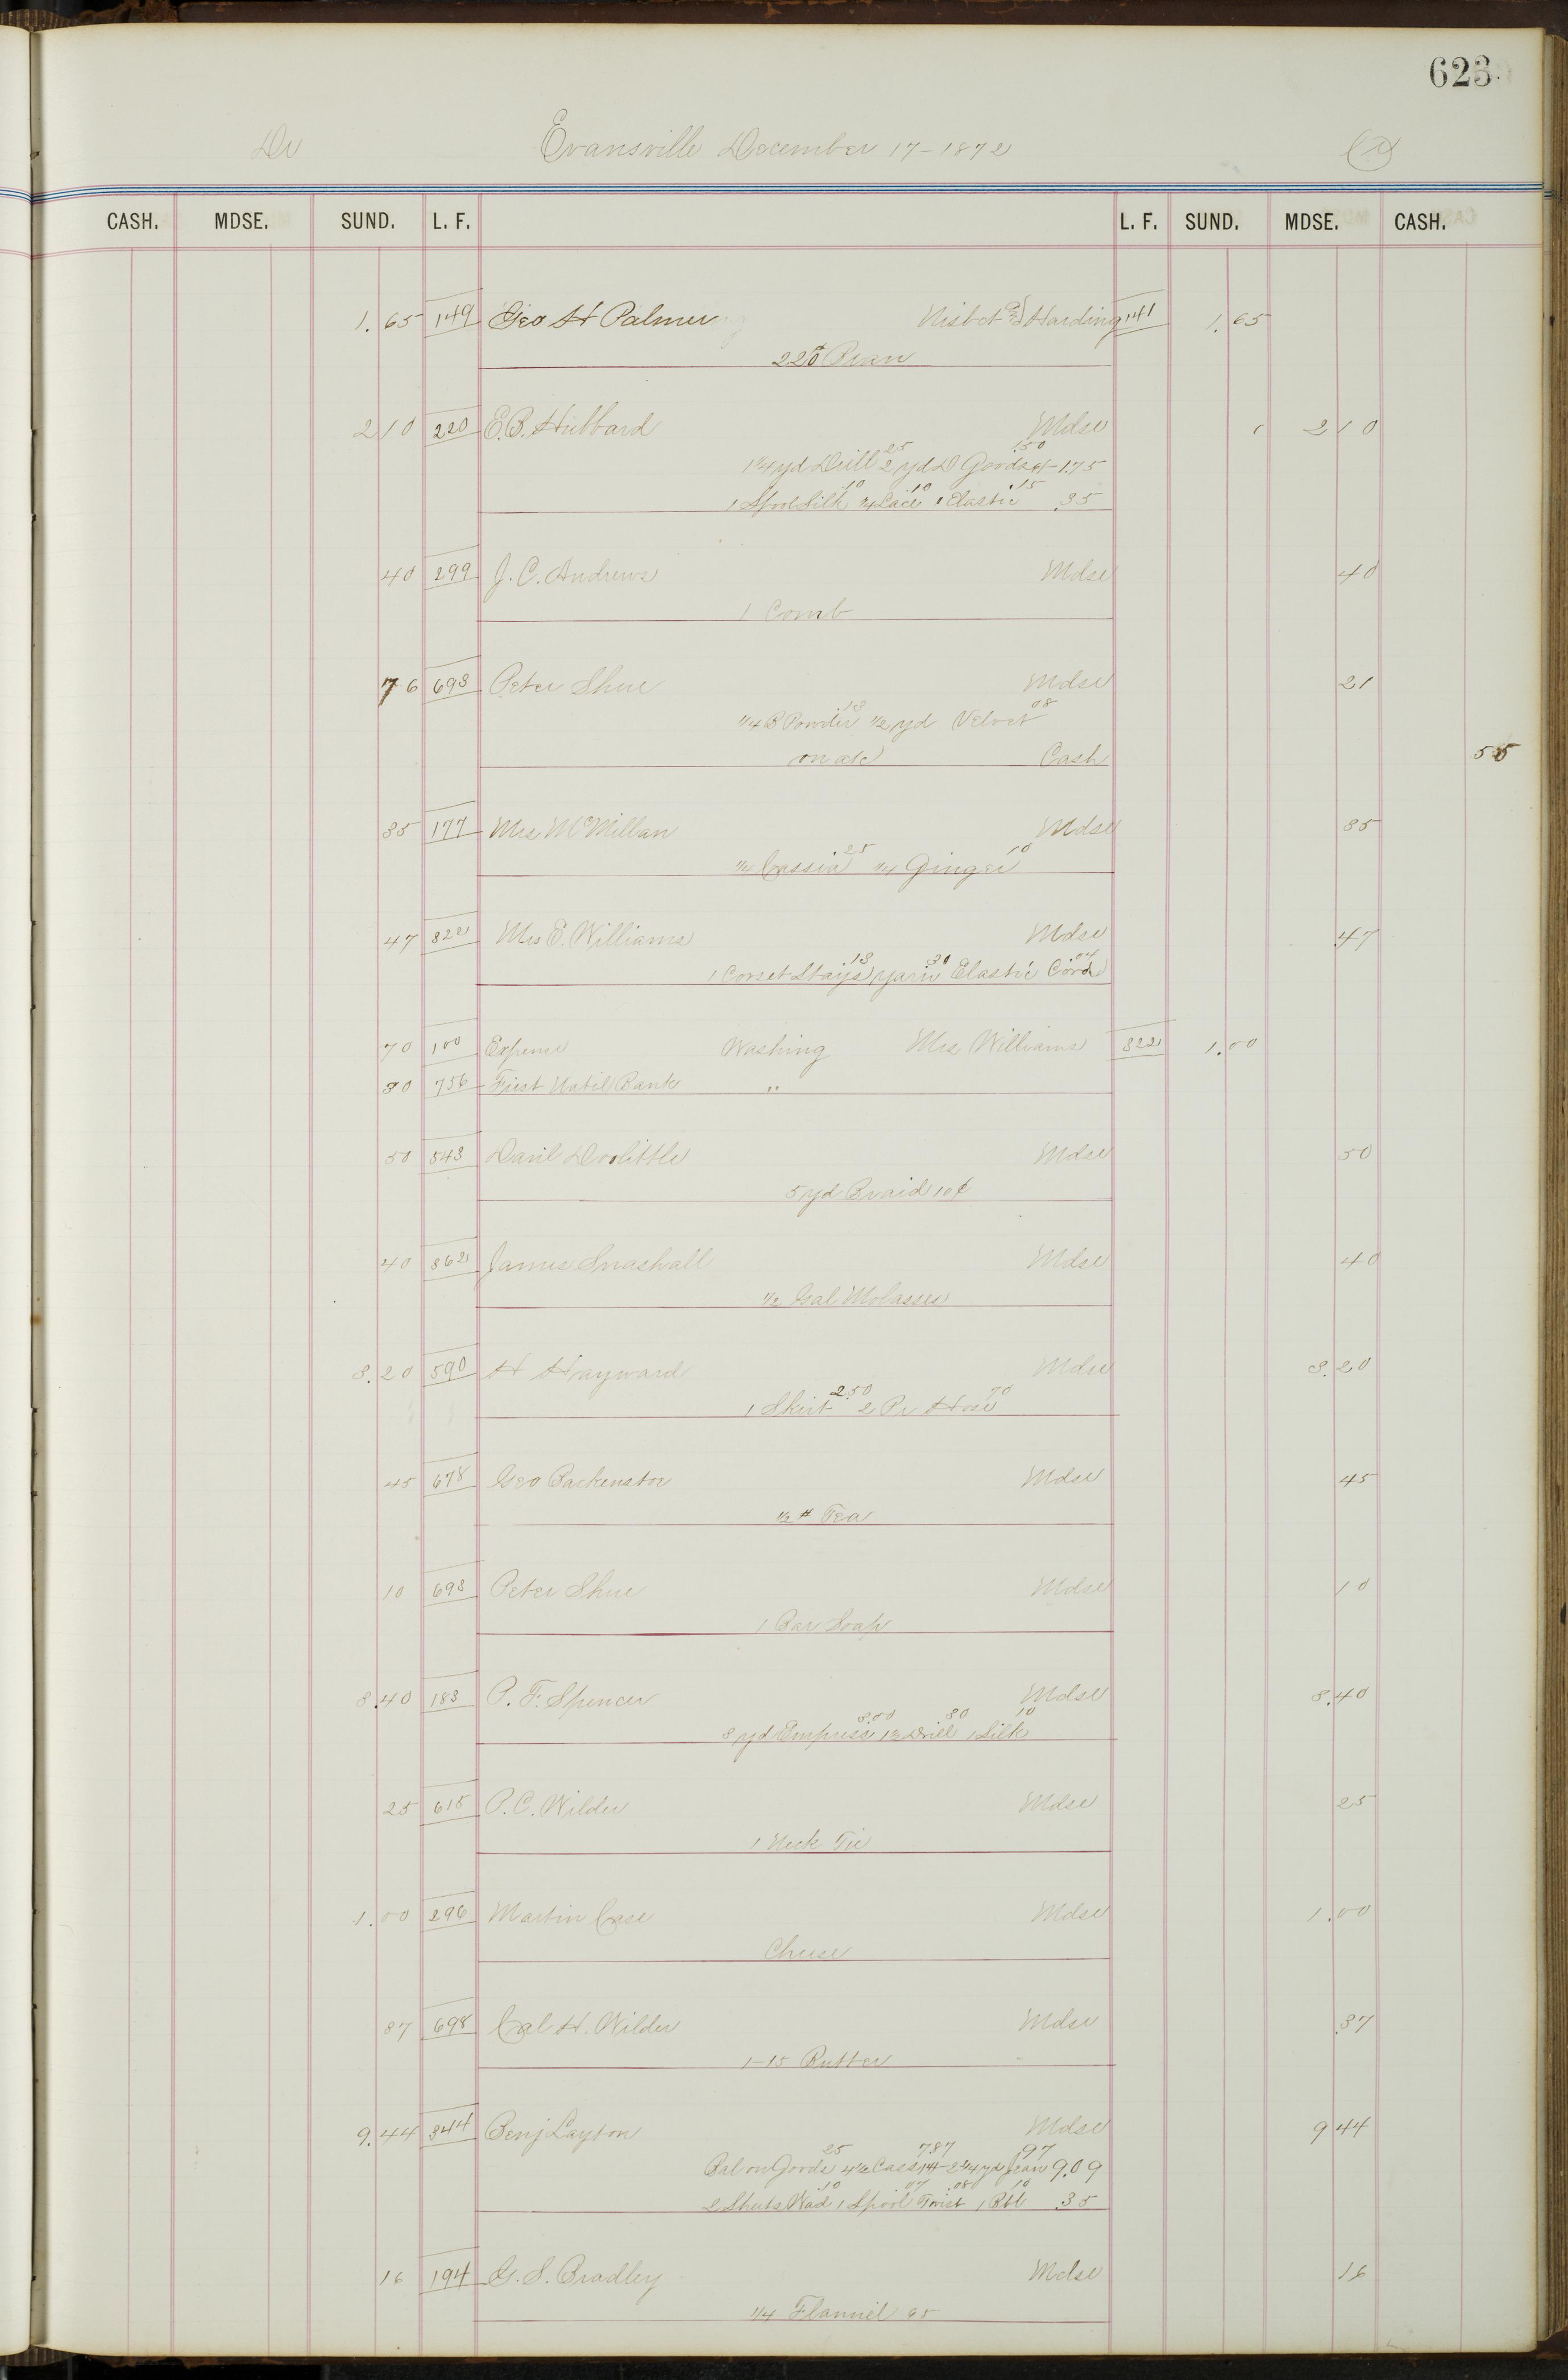 623
Dr Evansville December 17-1872 Cr
CASH. MDSE. SUND. L. F. L. F. SUND. MDSE. CASH.
1.65 149 Geo H Palmer Nisbet & Harding 141 1.65
220# Bran
2 10 220 E.B. Hubbard Mdse 2 10
25 1.50
1 1/4 yd Drill 2 yd D Goods 1.75
10 10 15
1 Spool Silk 1/4 Lace 1 Elastic .35
40 299 J. C. Andrews Mdse 40
1 Comb
76 693 Peter Shue Mdse 21
13 08
1/4 B Powder 1/2 yd Velvet
on a/c Cash 55
35 177 Mrs McMillan Mdse 35
25 10
1/4 Cassia 1/4 Ginger
47 822 Mrs E. Williams Mdse 47
13 30 04
1 Corset Stays yarn Elastic Cord
70 100 Expense Washing Mrs Williams 822 1.00
30 756 First Natil Bank "
50 543 Danl Doolittle Mdse 50
5 yd Braid 10¢
40 862 James Snashall Mdse 40
1/2 Gal Molasses
3.20 590 H Hayward Mdse 3.20
2.50 70
1 Skirt 2 Pr Hose
45 678 Geo Backenstoe Mdse 45
1/2 # Tea
10 693 Peter Shue Mdse 10
1 Bar Soap
8.40 183 P. F. Spencer Mdse 8.40
8.00 30 10
8 yd Empress 1 1/2 Drill 1 Silk
25 615 P. C. Wilder Mdse 25
1 Neck Tie
1.00 296 Martin Case Mdse 1.00
Cheese
37 698 Cal H. Wilder Mdse .37
1-15 Butter
9.44 344 Benj Layton Mdse 9 44
25 7.87 97
Bal on Goods 4 1/2 Cass 14/- 2 3/4 yd Jean 9.09
.10 .07 .08 10
2 Sheets Wad 1 Spool Twist 1 Rbl .35
16 194 G. S. Bradley Mdse 16
1/4 Flannel 65